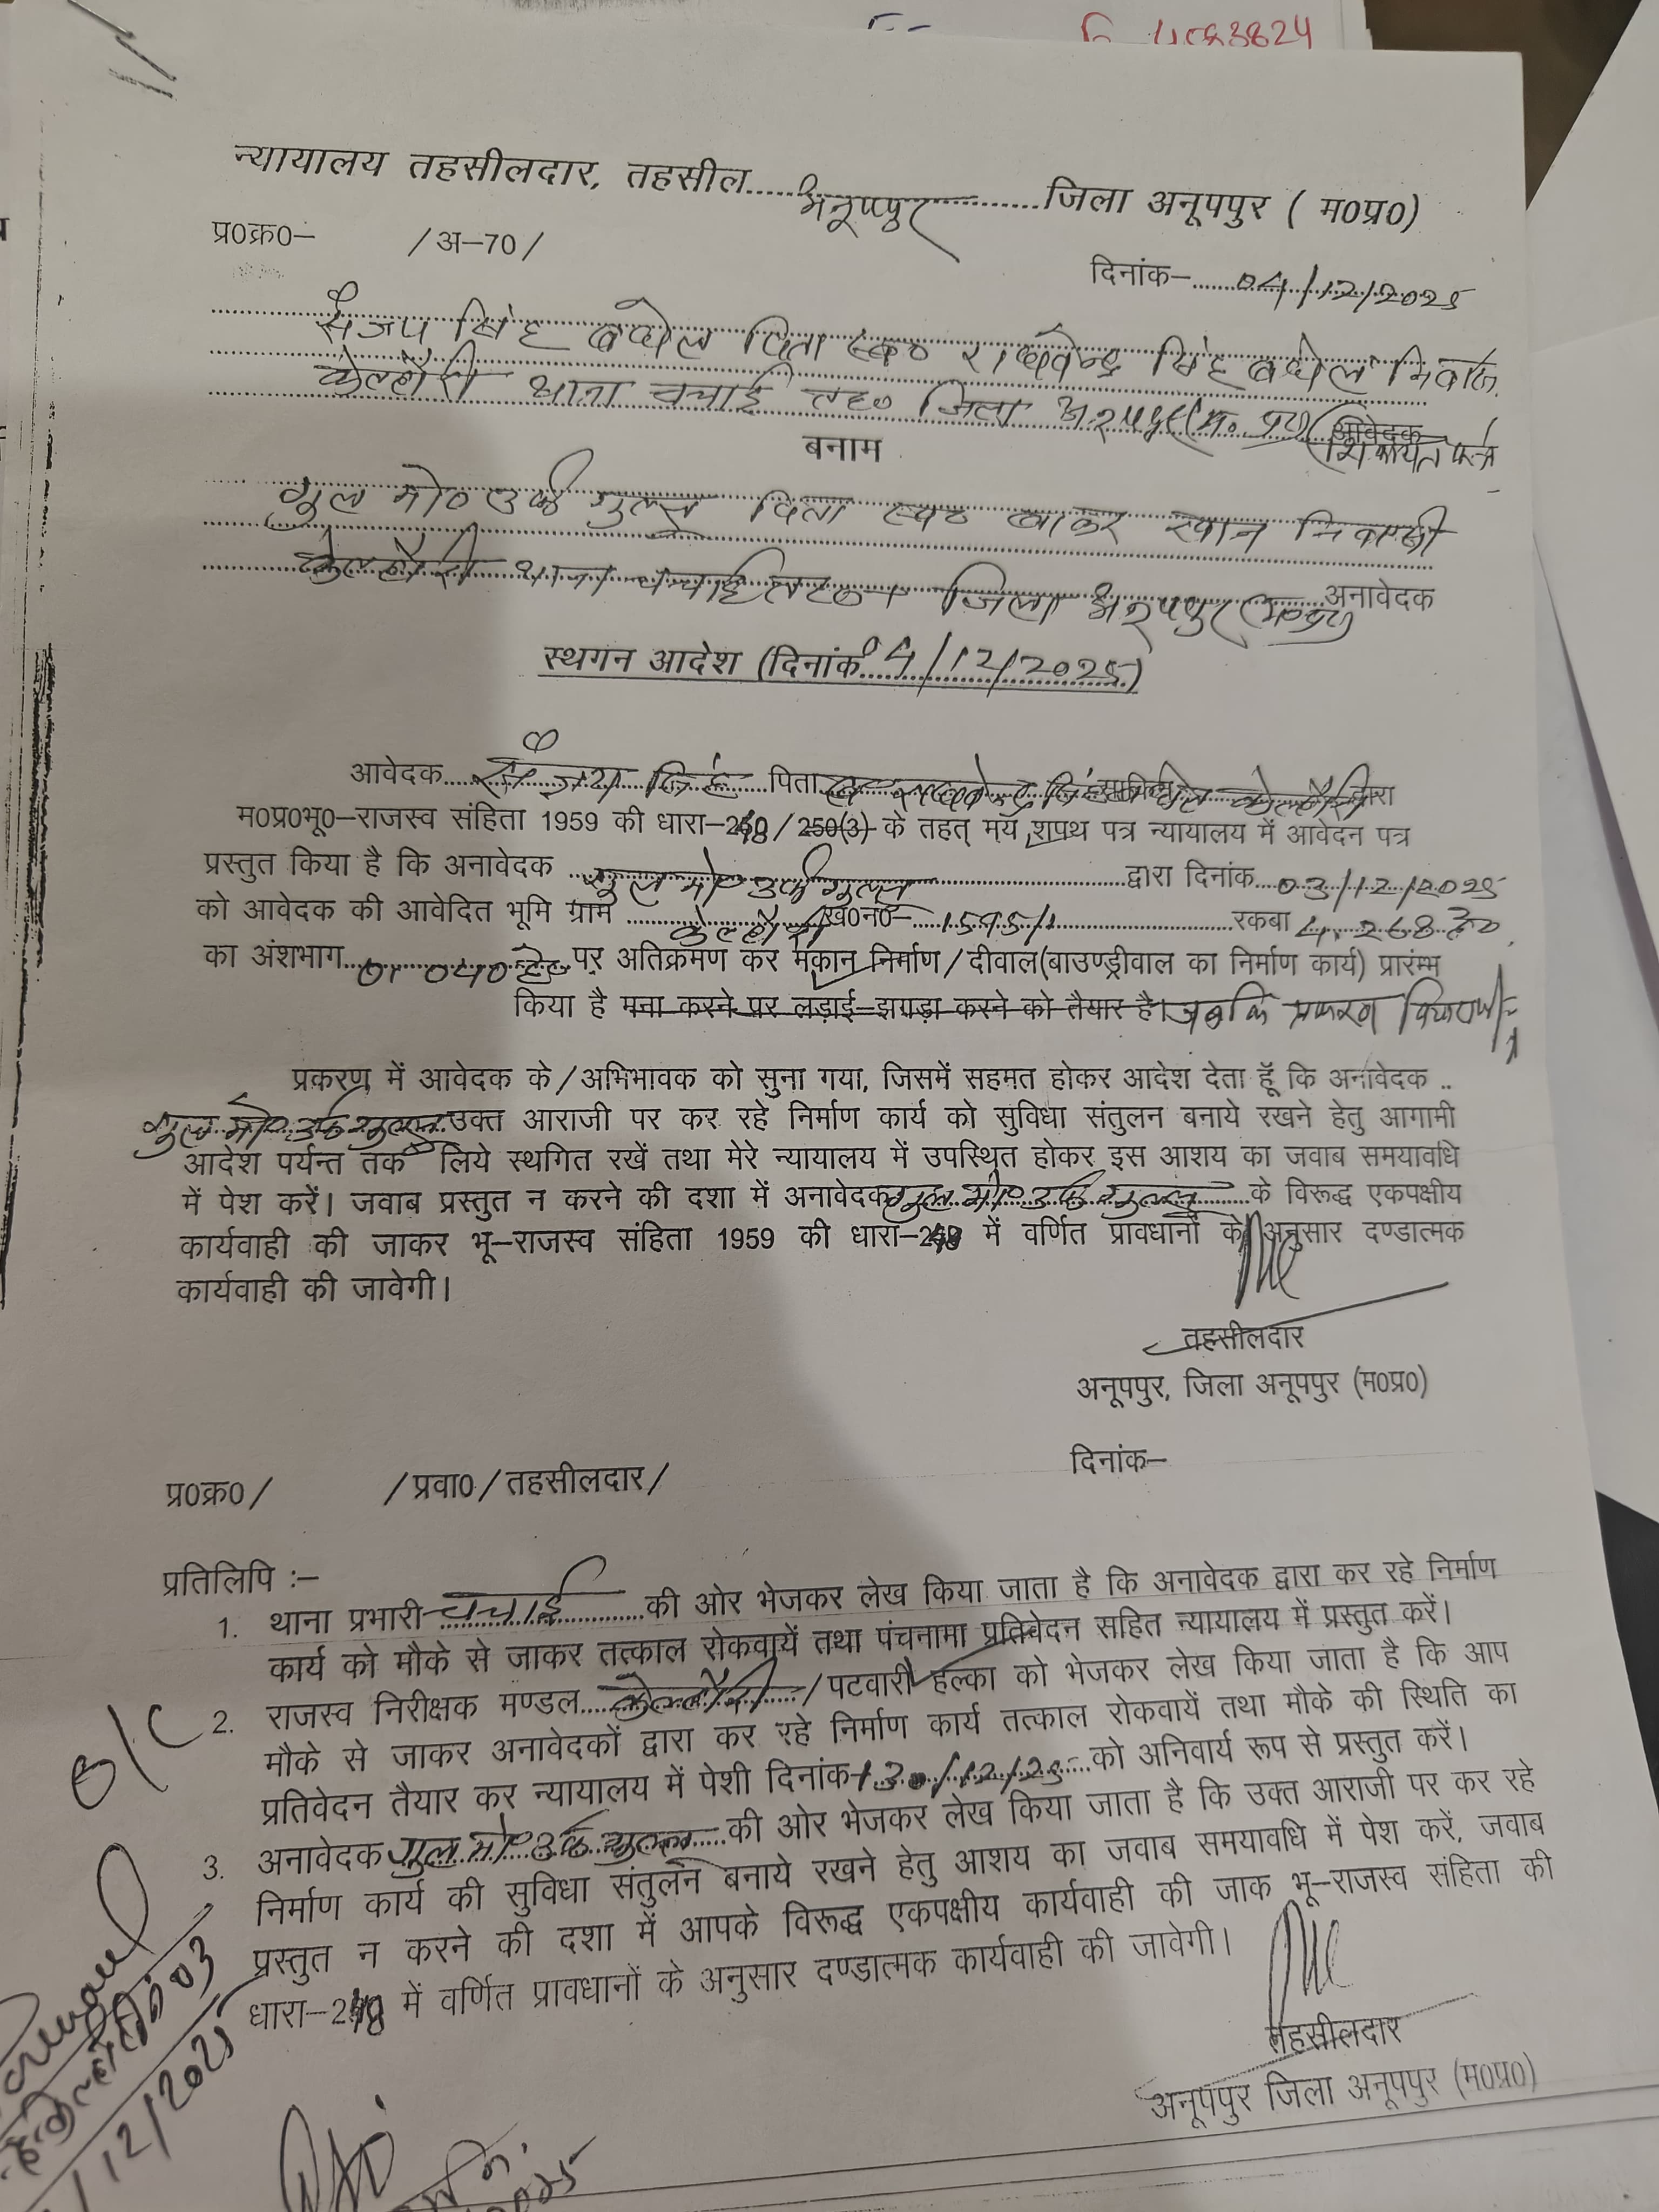 न्यायालय तहसीलदार, तहसील.....अनूपपुर............जिला अनूपपुर ( म0प्र0)
प्र0क्र0– /अ–70/
दिनांक–......04/12/2025
संजय सिंह बघेल पिता स्व० राघवेन्द्र सिंह बघेल निवासी
केल्हौरी थाना चचाई तह० जिला अनूपपुर (म. प्र०) आवेदक
शिकायतकर्ता
बनाम
गुल मो० उर्फ गुल्लू पिता स्व० खान निवासी
केल्हौरी थाना चचाई तह० जिला अनूपपुर (म०प्र०) अनावेदक
स्थगन आदेश (दिनांक 04/12/2025)
आवेदक....संजय सिंह.....पिता स्व० राघवेन्द्र सिंह बघेल केल्हौरी द्वारा
म0प्र0भू0–राजस्व संहिता 1959 की धारा–248/250(3) के तहत् मय शपथ पत्र न्यायालय में आवेदन पत्र
प्रस्तुत किया है कि अनावेदक ...गुल मो० उर्फ गुल्लू..........द्वारा दिनांक...03/12/2025
को आवेदक की आवेदित भूमि ग्राम ....केल्हौरी ख0न0–...1595/1..........रकबा 4.268 हे०
का अंशभाग..0.040 हे० पर अतिक्रमण कर मकान निर्माण/दीवाल(बाउण्ड्रीवाल का निर्माण कार्य) प्रारंम्भ
किया है मना करने पर लड़ाई–झगड़ा करने को तैयार है। जबकि प्रकरण
प्रकरण में आवेदक के/अभिभावक को सुना गया, जिसमें सहमत होकर आदेश देता हूँ कि अनावेदक ..
गुल मो० उर्फ गुल्लू उक्त आराजी पर कर रहे निर्माण कार्य को सुविधा संतुलन बनाये रखने हेतु आगामी
आदेश पर्यन्त तक लिये स्थगित रखें तथा मेरे न्यायालय में उपस्थित होकर इस आशय का जवाब समयावधि
में पेश करें। जवाब प्रस्तुत न करने की दशा में अनावेदक गुल मो० उर्फ गुल्लू.......के विरूद्ध एकपक्षीय
कार्यवाही की जाकर भू–राजस्व संहिता 1959 की धारा–248 में वर्णित प्रावधानों के अनुसार दण्डात्मक
कार्यवाही की जावेगी।
तहसीलदार
अनूपपुर, जिला अनूपपुर (म0प्र0)
दिनांक–
प्र0क्र0/ /प्रवा0/तहसीलदार/
प्रतिलिपि :–
1. थाना प्रभारी चचाई........की ओर भेजकर लेख किया जाता है कि अनावेदक द्वारा कर रहे निर्माण
कार्य को मौके से जाकर तत्काल रोकवायें तथा पंचनामा प्रतिवेदन सहित न्यायालय में प्रस्तुत करें।
2. राजस्व निरीक्षक मण्डल...केल्हौरी...../पटवारी हल्का को भेजकर लेख किया जाता है कि आप
मौके से जाकर अनावेदकों द्वारा कर रहे निर्माण कार्य तत्काल रोकवायें तथा मौके की स्थिति का
प्रतिवेदन तैयार कर न्यायालय में पेशी दिनांक 30/12/25....को अनिवार्य रूप से प्रस्तुत करें।
3. अनावेदक गुल मो० उर्फ गुल्लू....की ओर भेजकर लेख किया जाता है कि उक्त आराजी पर कर रहे
निर्माण कार्य की सुविधा संतुलन बनाये रखने हेतु आशय का जवाब समयावधि में पेश करें, जवाब
प्रस्तुत न करने की दशा में आपके विरूद्ध एकपक्षीय कार्यवाही की जाक भू–राजस्व संहिता की
धारा–248 में वर्णित प्रावधानों के अनुसार दण्डात्मक कार्यवाही की जावेगी।
तहसीलदार
अनूपपुर जिला अनूपपुर (म0प्र0)
O/C
12/2025